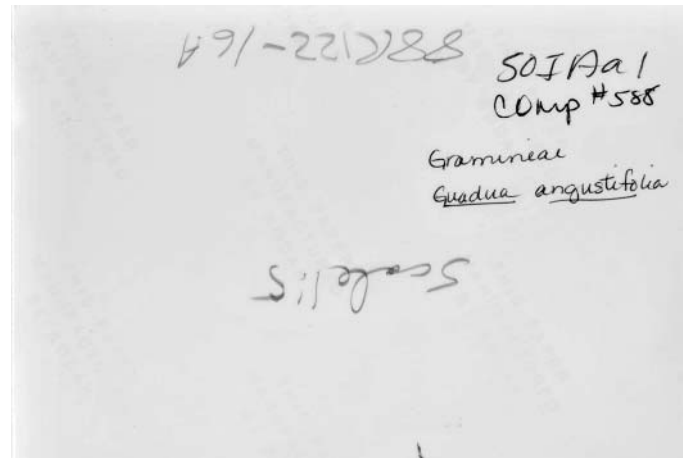 SOIAa1
COmp #588
Gramineae
Guadua angustifolia
Scale 1:5